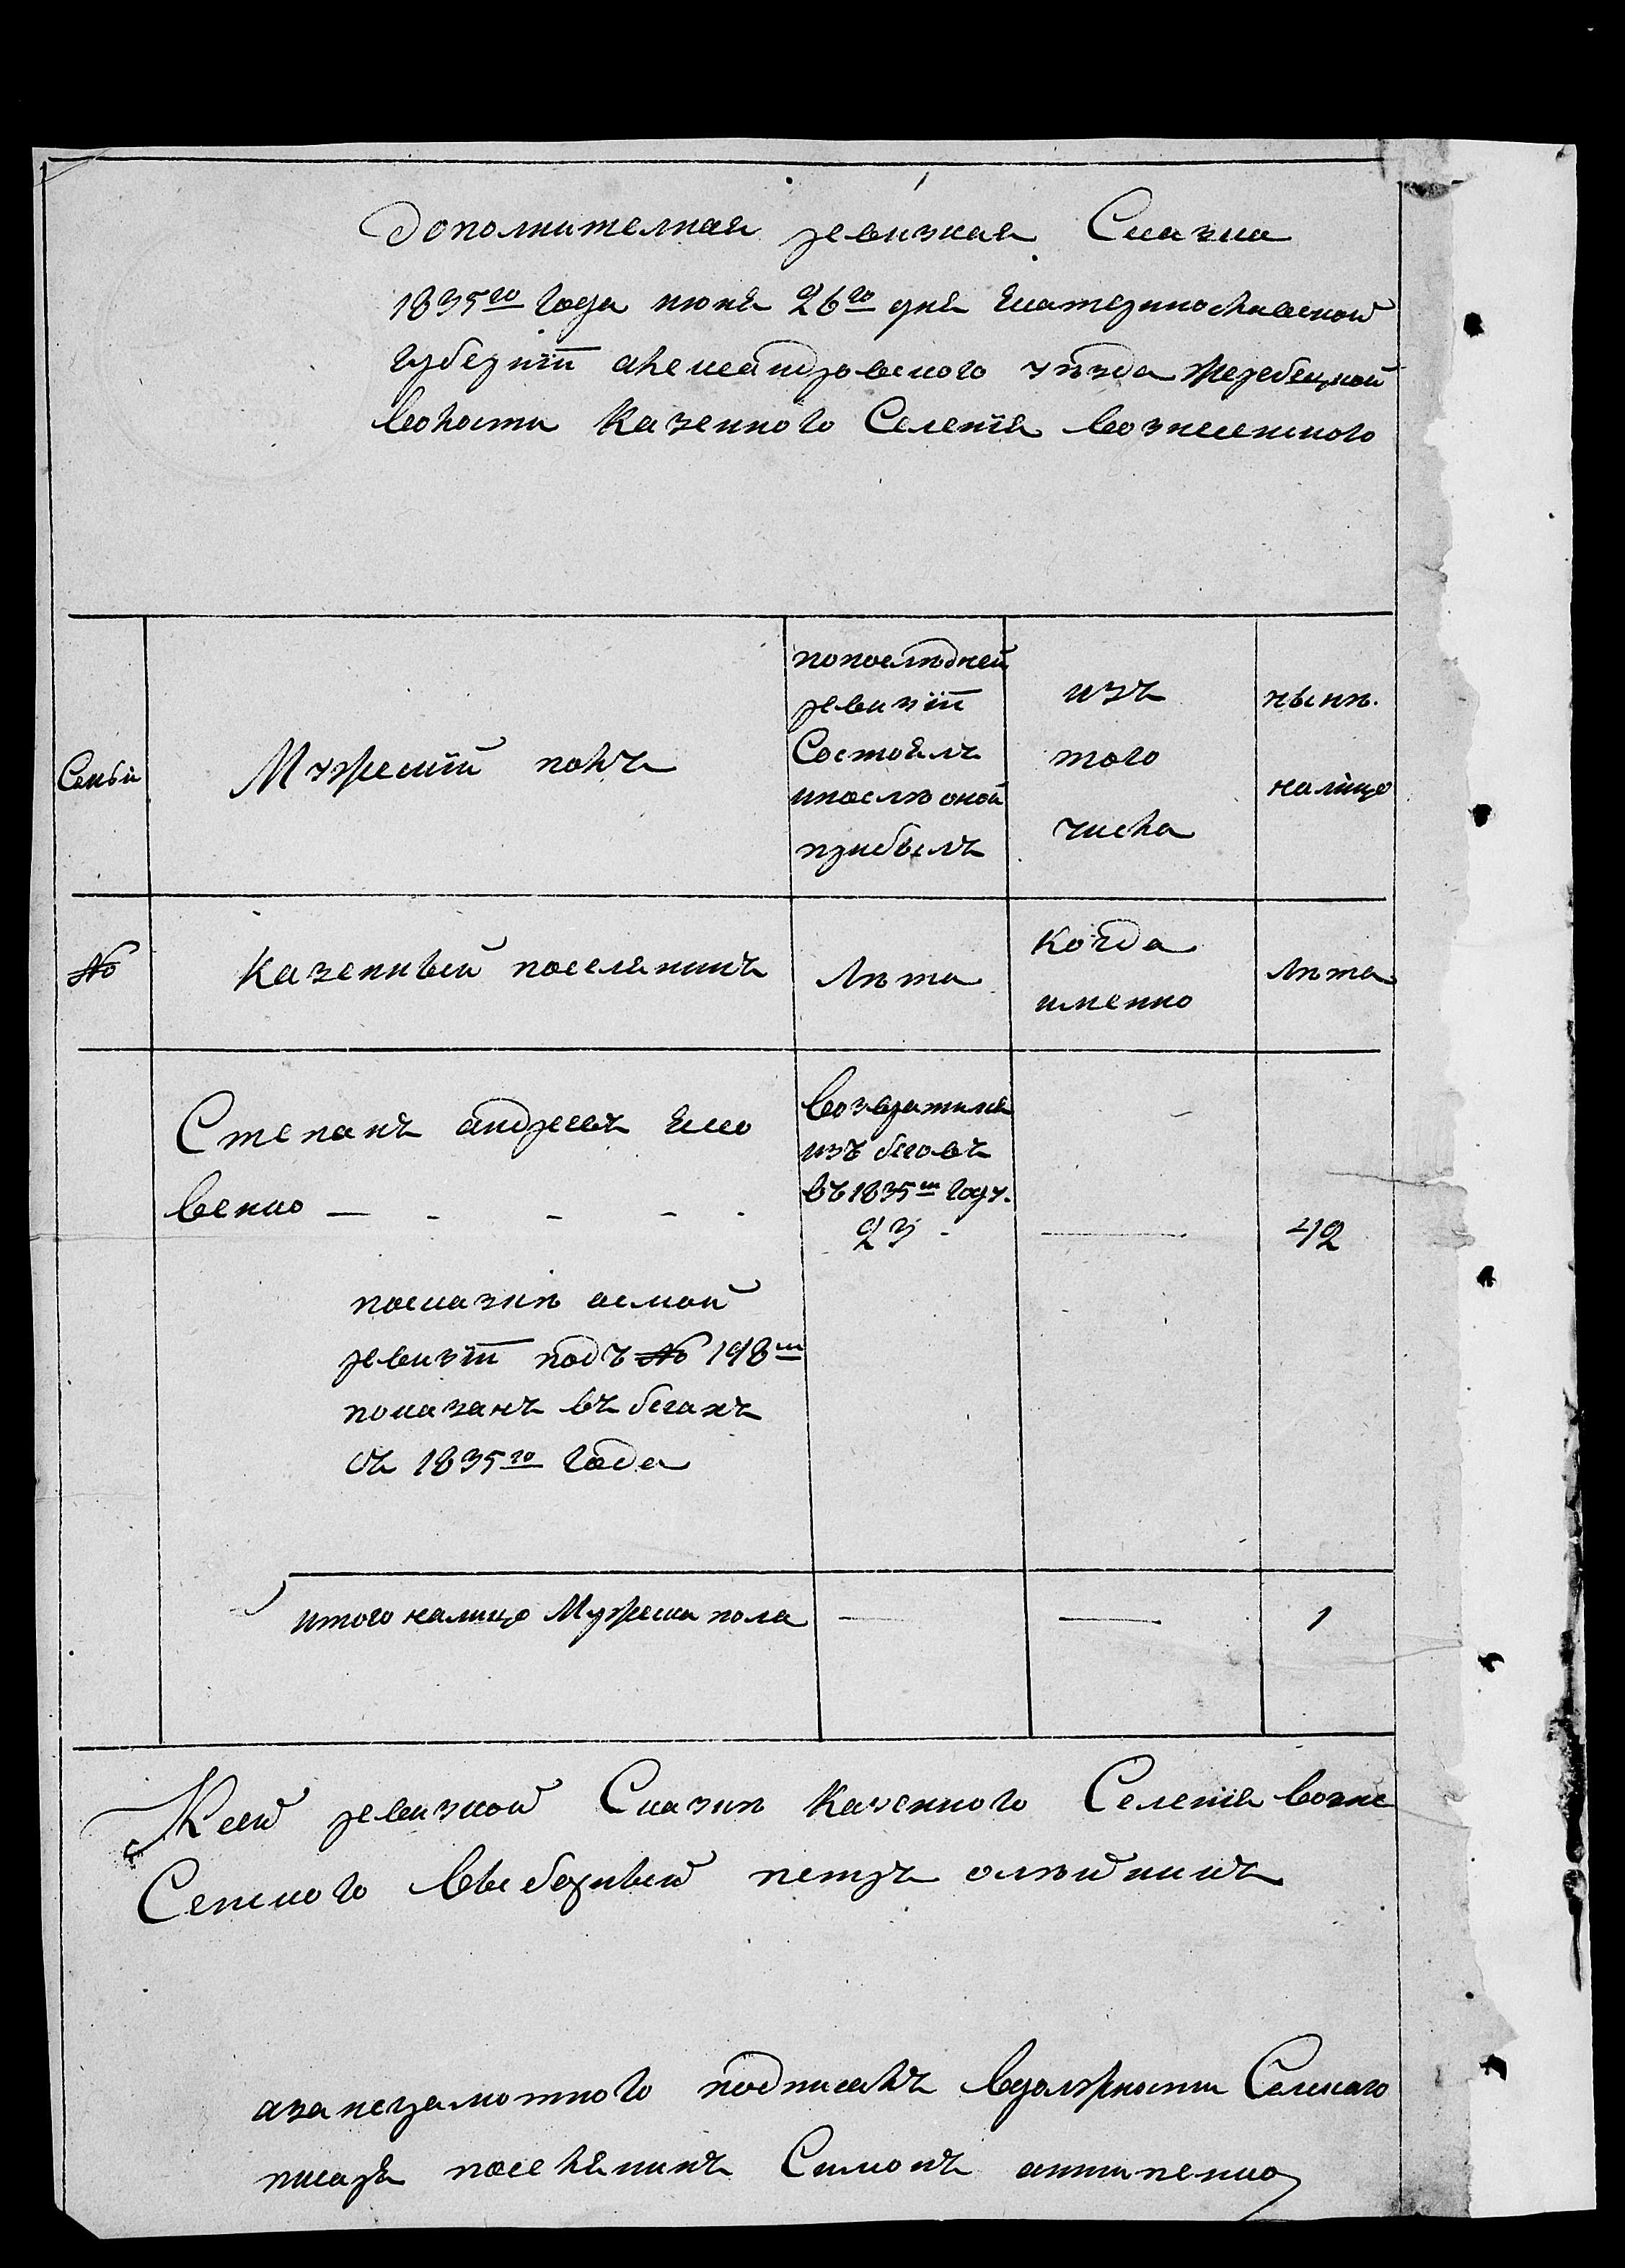 Дополнителная ревизкая Сказка
1835го года июня 26го дня Екатеринославской
губернiи александровского уѣзда жеребецкой
волости казенного Селенiя вознесенского
Семьи
Мужескiй полъ
попослѣдней
ревизiи
Состоялъ
ипослѣ оной
прибылъ
изъ
того
числа
нынѣ.
налицо
№
казенный поселянинъ
Лѣта
когда
именно
Лѣта
Степанъ андреевъ
венко
возвратился
изъ беговъ
въ 1835м году.
23
42
посказкѣ осмой
ревизiи подъ № 198м
показанъ въ бегахъ
съ 1835го года
итого налицо Мужеска пола
1
Ксей ревизкой Сказкѣ казенного Селенiя возне
Сенского выборный петръ олѣйникъ
азанеграмотного подписалъ вдолжности Селского
писаря поселянинъ Симонъ антипенко